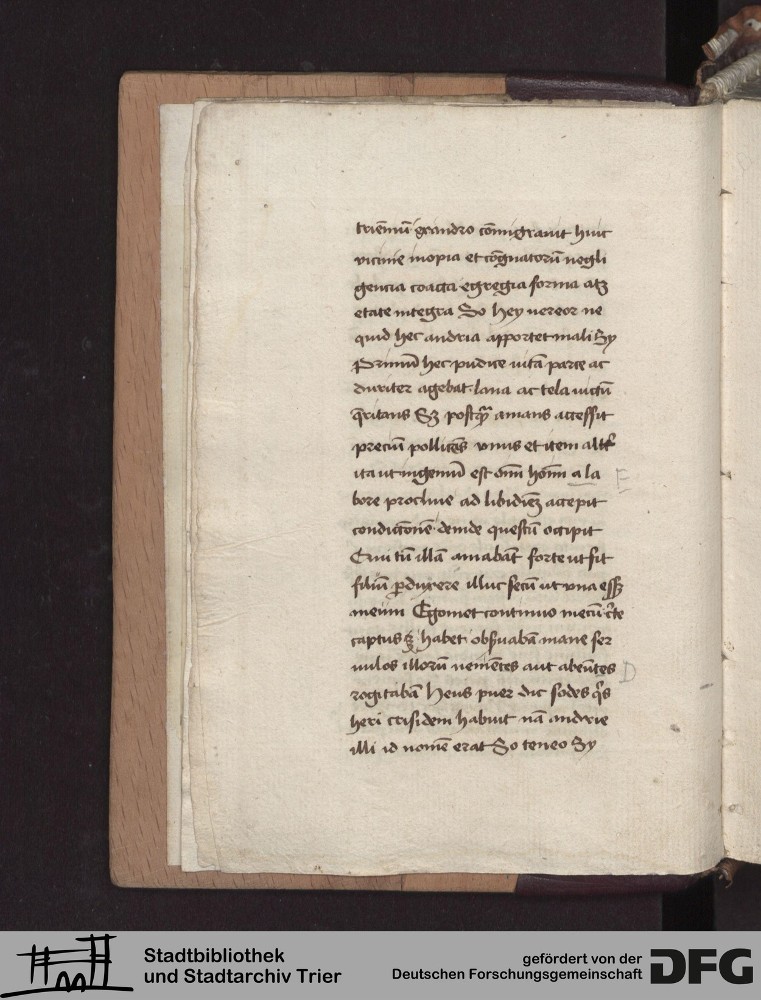 trienniũ exandro cõmigrauit huic
vicinie inopia et cõgnatorũ negli
gencia coacta egregia forma atqꝫ
etate integra So hey uereor ne
quid hec andria apportet mali Sy
Primũ hec pudice uitã parce ac
duriter agebat lana ac tela uictũ
q̃ritans Sꝫ postqᷓ amans accessit
preciũ pollicẽs vnus et item altẽr
ita ut ingeniũ est om̃ hoĩm a la
bore procliue ad libidinẽ accepit
condictonẽ deinde questũ occipit
Qui tũ illã amabãt forte ut fit
filiũ ꝑduxere illuc secũ ut vna essꝫ
meum Egomet continuo mecũ c̃te
captus ẽ habet obseruabã mane ser
uulos illorũ venientes aut abeũtes
rogitabã heus puer dic sodes q̃s
heri crisidem habuit nã andrie
illi id nomẽ erat So teneo Sy
E
D
Stadtbibliothek
und Stadtarchiv Trier
gefördert von der
Deutschen Forschungsgemeinschaft
DFG